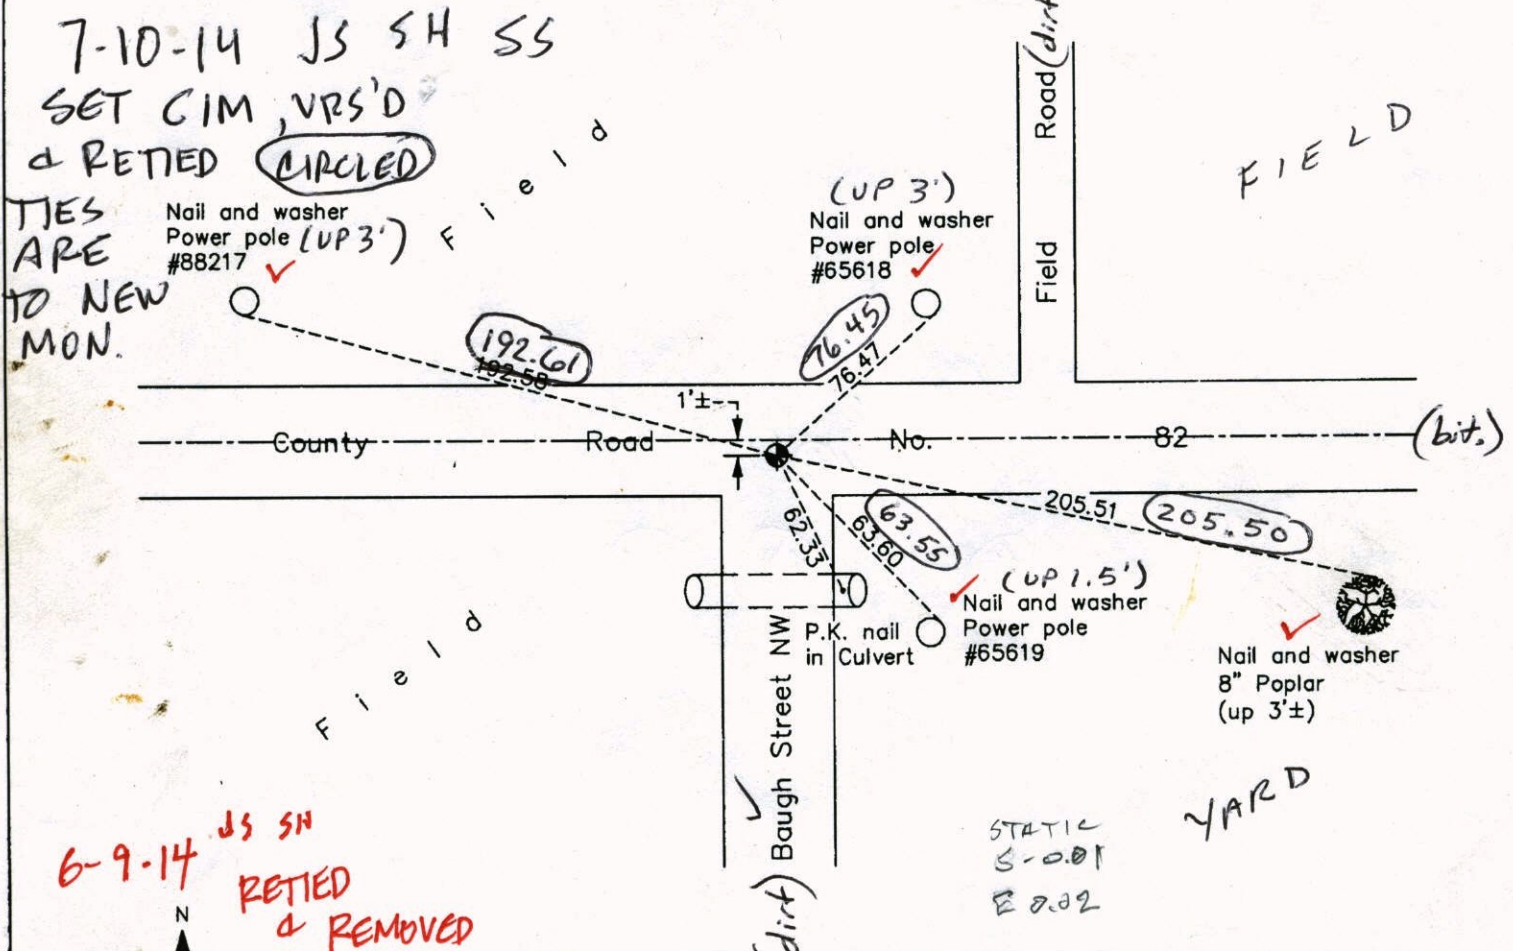 7-10-14 JS SH SS
SET CIM, VRS'D
& RETIED CIRCLED
TIES
ARE
TO NEW
MON.
Nail and washer
Power pole (UP 3')
#88217
Field
(UP 3')
Nail and washer
Power pole
#65618
Field Road (dirt
FIELD
192.61
192.58
76.45
76.47
1'±
County Road No. 82 (bit.)
62.33
63.55
63.60
205.51
205.50
(UP 1.5')
Nail and washer
Power pole
#65619
P.K. nail
in Culvert
Nail and washer
8" Poplar
(up 3'±)
Field
Baugh Street NW
dirt)
YARD
STATIC
S-0.01
E 0.02
6-9-14 JS SH
RETIED
& REMOVED
N